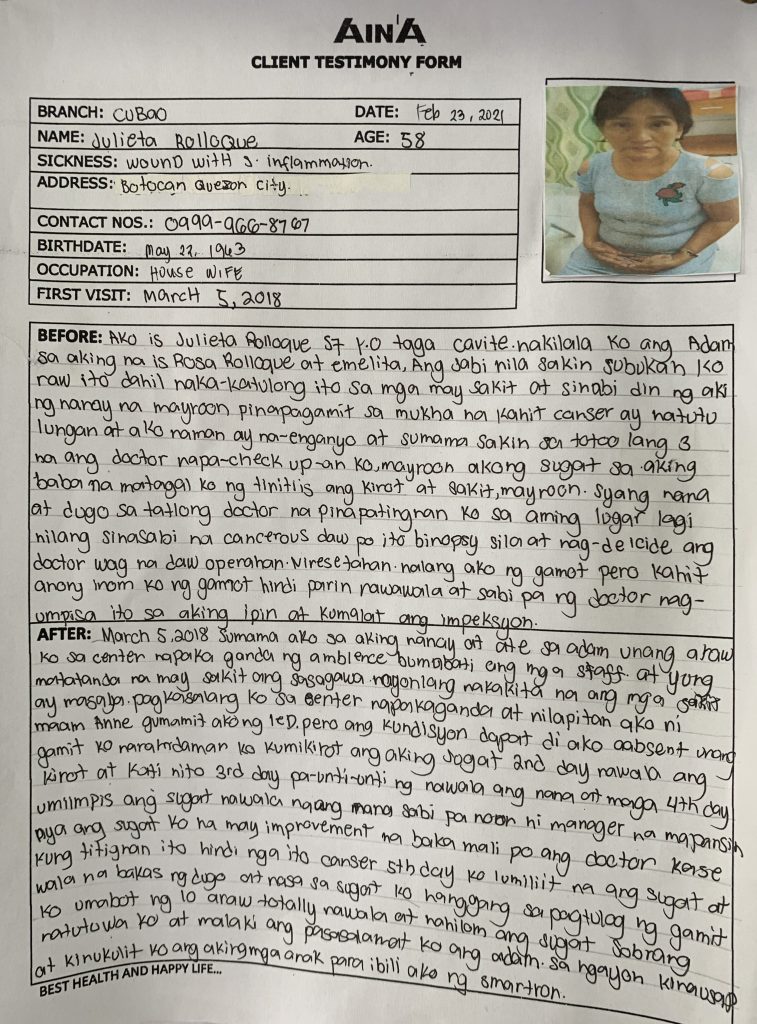 AIN'A
CLIENT TESTIMONY FORM
BRANCH: CUBAO DATE: Feb 23, 2021
NAME: Julieta Rolloque AGE: 58
SICKNESS: wound with s. inflammation.
ADDRESS: Botocan Quezon City.
CONTACT NOS.: 0999-966-8767
BIRTHDATE: may 22, 1963
OCCUPATION: House Wife
FIRST VISIT: March 5, 2018
BEFORE: Ako is Julieta Rolloque 57 y.o taga cavite. nakilala ko ang Adam
sa aking na is Rosa Rolloque at emelita, Ang sabi nila sakin subukan ko
raw ito dahil naka-katulong ito sa mga may sakit at sinabi din ng aki
ng nanay na mayroon pinapagamit sa mukha na kahit canser ay natutu
lungan at ako naman ay na-enganyo at sumama sakin sa totoo lang 3
na ang doctor napa-check up-an ko, mayroon akong sugat sa aking
baba na matagal ko ng tinitiis ang kirot at sakit, mayroon. syang nana
at dugo sa tatlong doctor na pinapatingnan ko sa aming lugar lagi
nilang sinasabi na cancerous daw po ito binopsy sila at nag-deicide ang
doctor wag na daw operahan. niresetahan. nalang ako ng gamot pero kahit
anong inom ko ng gamot hindi parin nawawala at sabi pa ng doctor nag-
umpisa ito sa aking ipin at kumalat ang impeksyon.
AFTER: March 5, 2018 sumama ako sa aking nanay at ate sa adam unang araw
ko sa center napaka ganda ng ambience bumabati ang mga staff. at yung
matatanda na may sakit ang sasagawa. nakakita na ang mga sakit
ay masaya. pagkasalang ko sa center napakaganda at nilapitan ako ni
maam Anne gumamit akong led. pero ang kundisyon dapat di ako aabsent unang
gamit ko nararamdaman ko kumikirot ang aking sugat 2nd day nawala ang
kirot at kati nito 3rd day pa-unti-unti ng nawala ang nana at maga 4th day
umiimpis ang sugat nawala ngang nana sabi pa noon ni manager na mapansin
niya ang sugat ko na may improvement na baka mali po ang doctor kase
kung titignan ito hindi nga ito canser 5th day ko lumiliit na ang sugat at
wala na bakas ng dugo at nasa sa sugat ko hanggang sa pagtulog ng gamit
ko umabot ng 10 araw totally nawala at nahilom ang sugat sobrang
natutuwa ko at malaki ang pasasalamat ko ang adam. sa ngayon kinausap
at kinukulit ko ang aking mga anak para ibili ako ng smartron.
BEST HEALTH AND HAPPY LIFE...